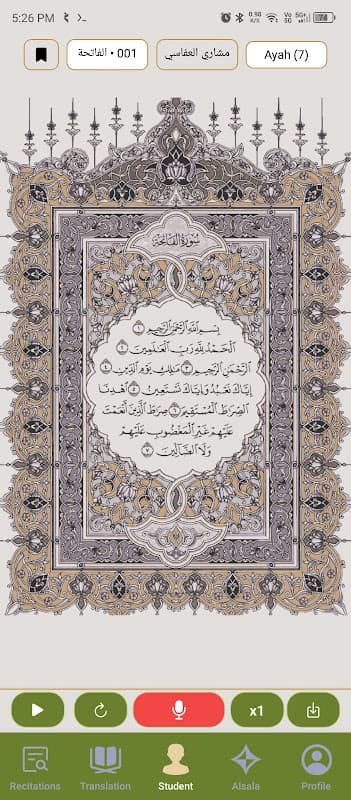 5:26 PM
0.98 K/S Vo 5G 5G+ 74
001 • الفاتحة
مشاري العفاسي
Ayah (7)
سُورَةُ الفَاتِحَة
بِسْمِ اللَّهِ الرَّحْمَٰنِ الرَّحِيمِ ١
الْحَمْدُ لِلَّهِ رَبِّ الْعَالَمِينَ ٢
الرَّحْمَٰنِ الرَّحِيمِ ٣ مَالِكِ يَوْمِ الدِّينِ ٤
إِيَّاكَ نَعْبُدُ وَإِيَّاكَ نَسْتَعِينُ ٥ اهْدِنَا
الصِّرَاطَ الْمُسْتَقِيمَ ٦ صِرَاطَ الَّذِينَ أَنْعَمْتَ
عَلَيْهِمْ غَيْرِ الْمَغْضُوبِ عَلَيْهِمْ
وَلَا الضَّالِّينَ ٧
x1
Recitations
Translation
Student
Alsala
Profile